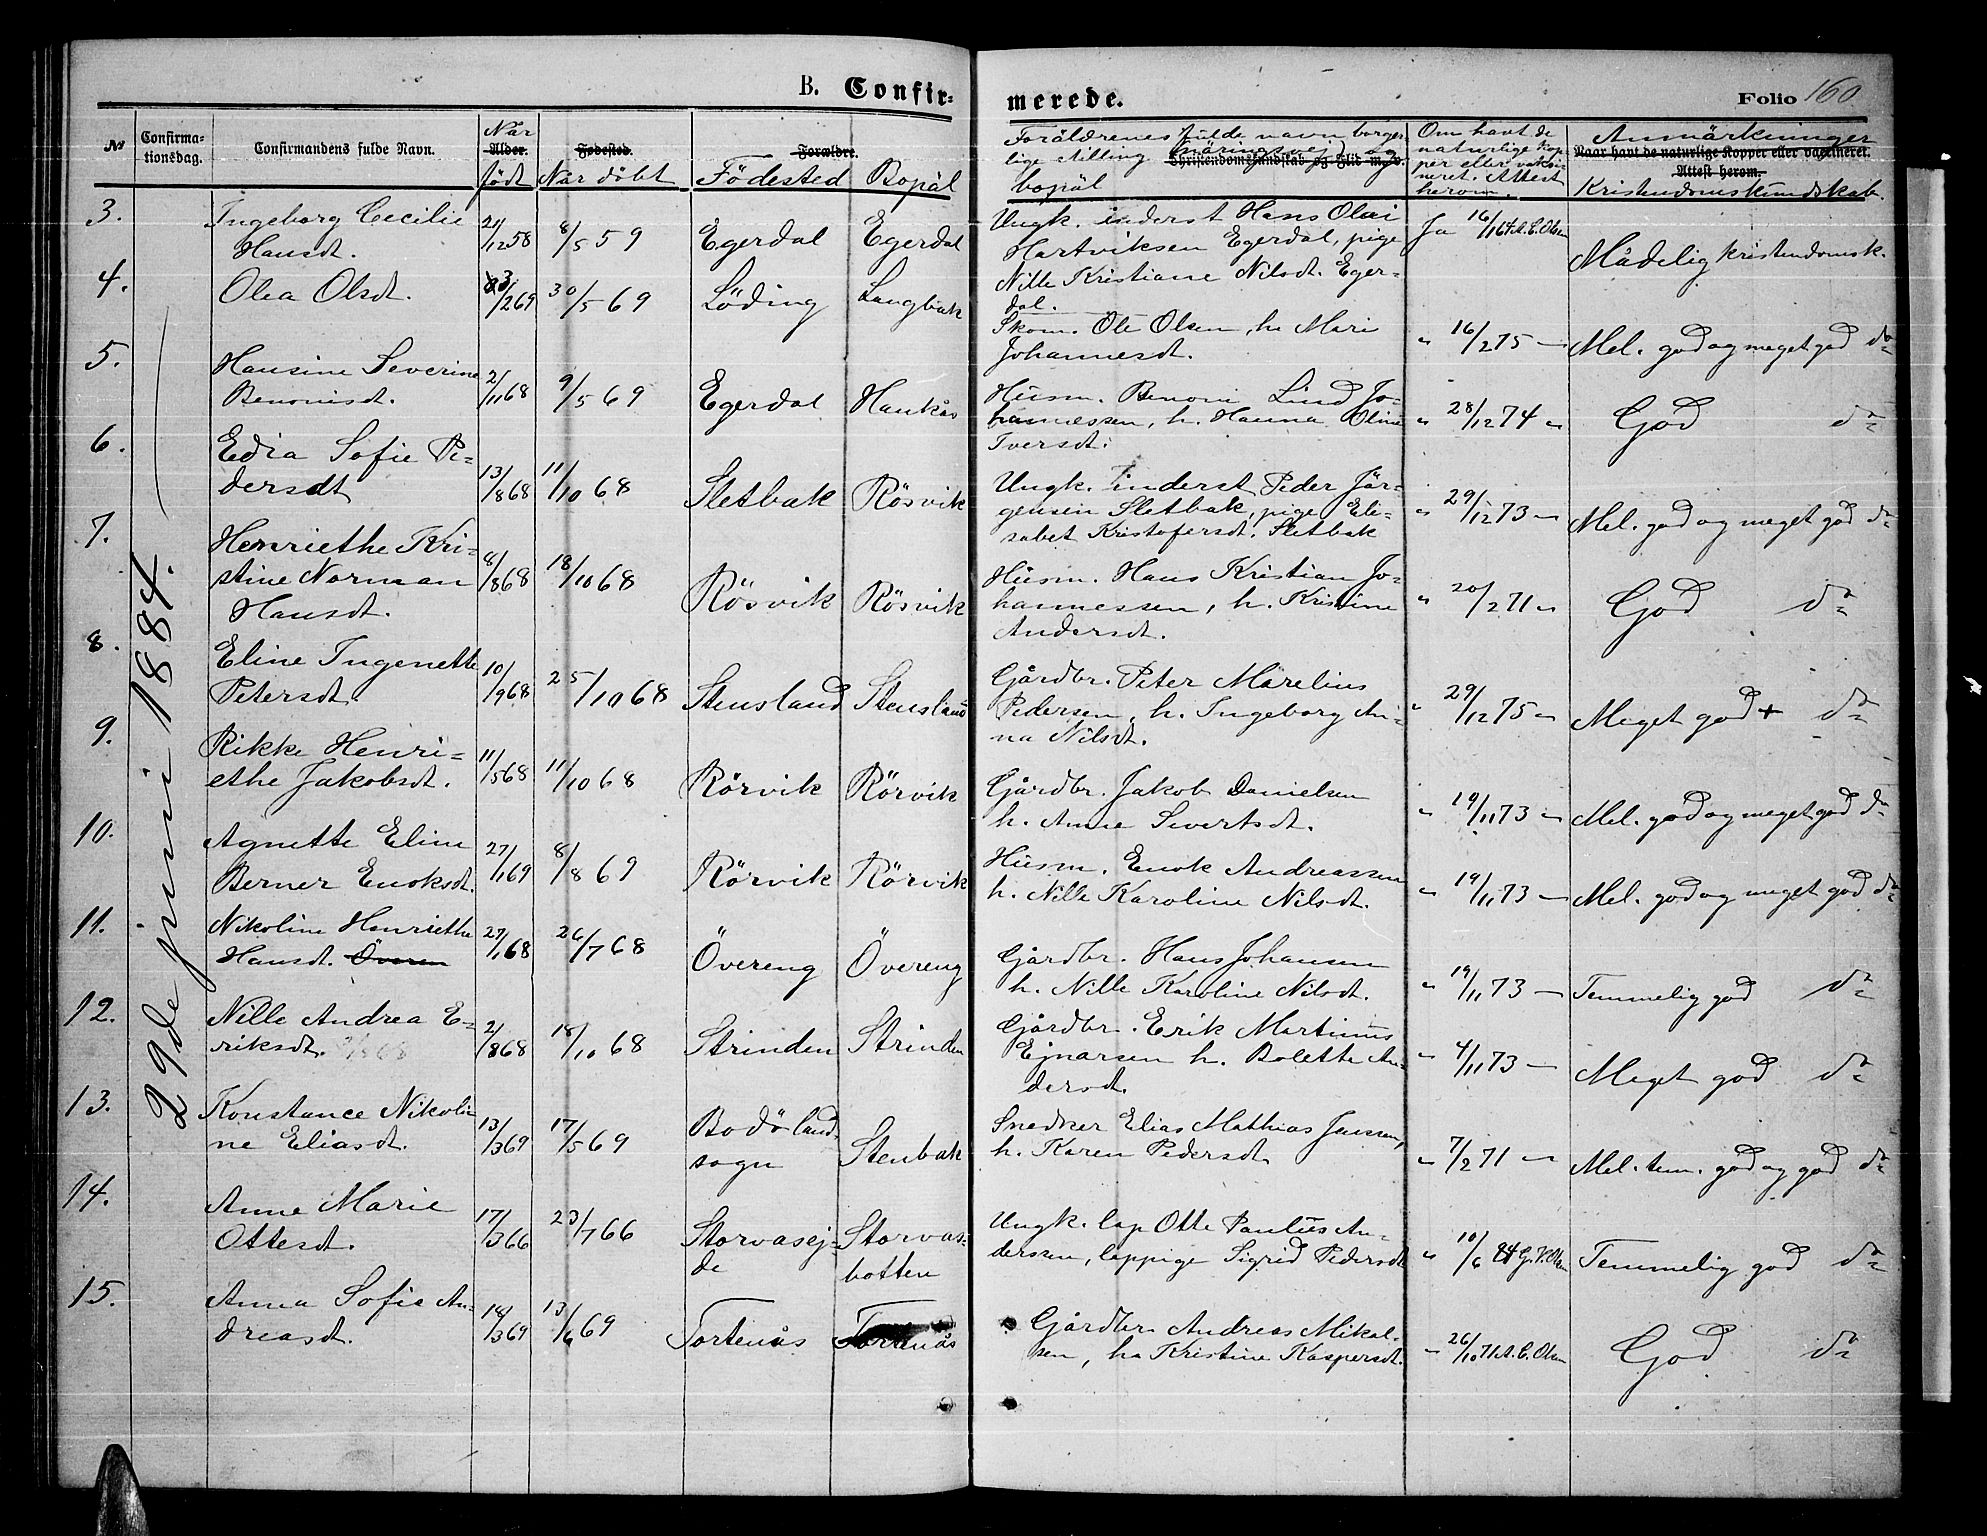 B. Confir-
merede.
Folio 160
№
Confirma-
tionsdag.
Confirmandens fulde Navn.
När
Alder.
födt
Fødested.
När döbt
Forældre.
Födested Bopäl
Foräldrenes fulde navn, borger-
lige stilling (näringsvej) og
Christendomskundskab og Flid m. v.
bopäl
Om havt de
naturlige kop-
per eller vaksi-
neret. Attest
herom.
Anmärkninger
Naar havt de naturlige Kopper eller vaccineret.
Attest herom.
Kristendomskundskab.
29de juni 1884.
3.
Ingeborg Cecilie
Hansdt.
21/12 58
8/5 59
Egerdal
Egerdal
Ungk. inderst Hans Olai
Hartviksen Egerdal, pige
Nille Kristiane Nilsdt. Eger-
dal.
Ja 16/1 64 A. C. Olsen
Mådelig kristendomsk.
4.
Olea Olsdt.
3/2 69
30/5 69
Löding
Langbak
Skom. Ole Olsen, h. Mari
Johannesdt.
" 16/2 75 —
Mel. god og meget god do
5.
Hansine Severine
Benonisdt.
2/11 68
9/5 69
Egerdal
Haukås
Husm. Benoni Lind Jo-
hannessen, h. Hanna Oline
Iversdt.
" 28/12 74 "
God do
6.
Edia Sofie Pe-
dersdt
13/8 68
11/10 68
Sletbak
Rösvik
Ungk. inderst Peder Jör-
gensen Sletbak, pige Eli-
sabet Kristofersdt. Sletbak
" 29/12 73 —
Mel. god og meget god do
7.
Henriethe Kri-
stine Norman
Hansdt.
8/8 68
18/10 68
Rösvik
Rösvik
Husm. Hans Kristian Jo-
hannessen, h. Kristine
Andersdt.
" 20/2 71 "
God do
8.
Eline Ingenette
Petersdt.
10/9 68
25/10 68
Stensland
Stensland
Gårdbr. Peter Märelius
Pedersen, h. Ingeborg An-
na Nilsdt.
" 29/12 75 "
Meget god + do
9.
Rikke Henri-
ethe Jakobsdt.
11/5 68
11/10 68
Rörvik
Rörvik
Gårdbr. Jakob Danielsen
h. Anne Sivertsdt.
" 19/11 73 —
Mel. god og meget god do
10.
Agnette Eline
Berner Enoksdt.
27/1 69
8/8 69
Rörvik
Rörvik
Husm. Enok Andreassen
h. Nille Karoline Nilsdt.
" 19/11 73 —
Mel. god og meget god do
11.
Nikoline Henriethe
Hansdt. Överen
27/1 68
26/7 68
Övereng
Övereng
Gårdbr. Hans Johansen
h. Nille Karoline Nilsdt.
" 19/11 73 —
Temmelig god do
12.
Nille Andrea E-
riksdt.
2/8 68
18/10 68
Strinden
Strinden
Gårdbr. Erik Martinus
Ejnarsen h. Bolette An-
dersdt.
" 4/11 73 —
Meget god do
13.
Konstance Nikoli-
ne Eliasdt.
13/3 69
17/5 69
Bodö land-
sogn
Stenbak
Snedker Elias Mathias Jensen,
h. Karen Pedersdt.
" 7/2 71 —
Mel. tem. god og god do
14.
Anne Marie
Ottesdt.
17/3 66
23/7 66
Storvasej-
de
Storvas-
botten
Ungk. lap Otte Paulus An-
derssen, lappige Sigrid Pedersdt
" 10/6 84 G. V. Olsen
Temmelig god do
15.
Anna Sofie An-
dreasdt.
18/3 69
13/6 69
Tortenås
Tortenås
Gårdbr. Andreas Mikal-
sen, h. Kristine Kaspersdt.
" 26/10 71 A. C. Olsen
God do